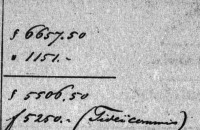 f 6657.50
" 1151.-
f 5506.50
f 5250.- (Fideicommis)